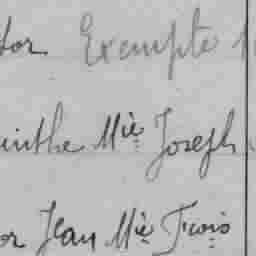 tor Exempté
inthe Mie Joseph
or Jean Mie Frcois